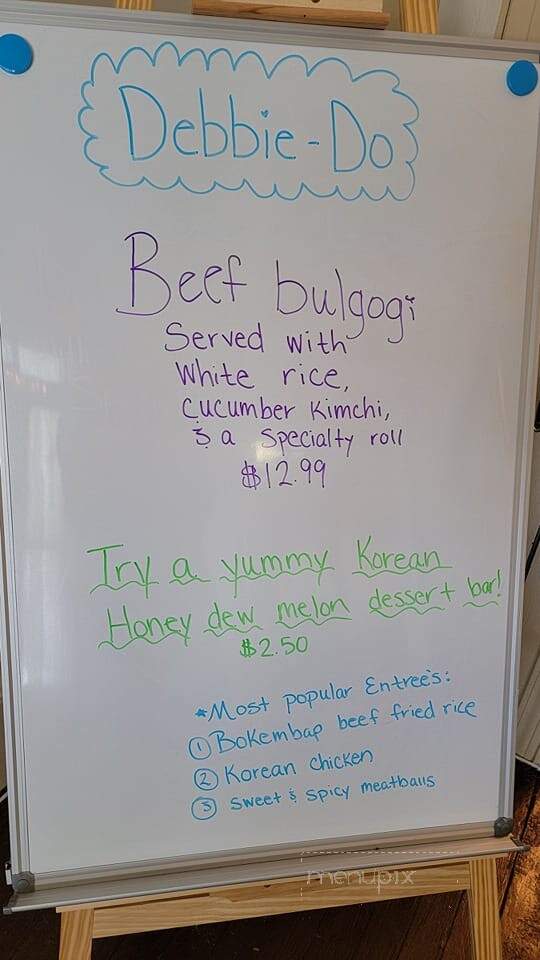 Debbie-Do
Beef bulgogi
Served with
White rice,
Cucumber Kimchi,
& a Specialty roll
$12.99
Try a yummy Korean
Honey dew melon dessert bar!
$2.50
*Most popular Entree's:
① Bokembap beef fried rice
② Korean chicken
③ Sweet & spicy meatballs
menupix